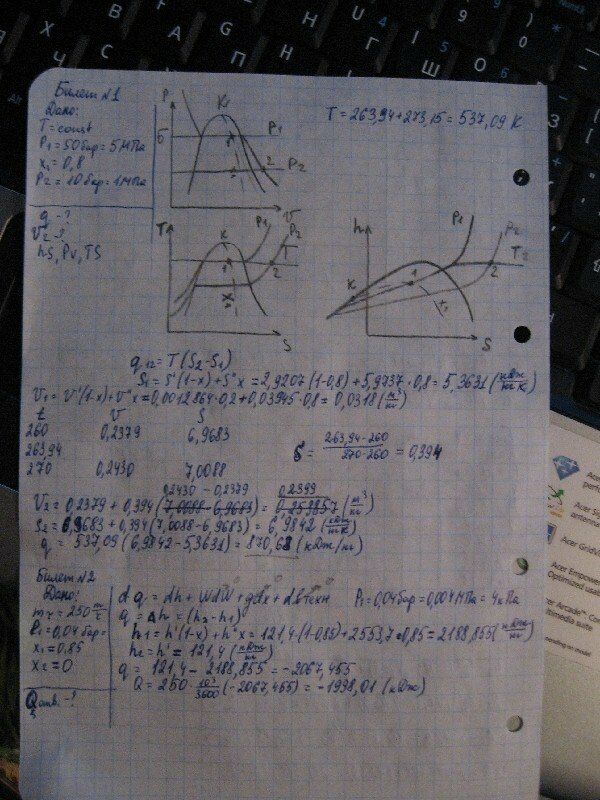 Билет №1
Дано:
T = const
P₁ = 50 бар = 5 МПа
x₁ = 0,8
P₂ = 10 бар = 1 МПа
q - ?
V₂ - ?
hS, PV, TS
P
K
б
1
P₁
2
P₂
V
T = 263,94 + 273,15 = 537,09 K
T
K
P₁
P₂
T
1
2
S
h
P₁
P₂
T₂
K
1
2
S
q₁₂ = T(S₂-S₁)
S₁ = S'(1-x) + S''x = 2,9207(1-0,8) + 5,9737 · 0,8 = 5,3631 (кДж/кг К)
V₁ = V'(1-x) + V''x = 0,0012864 · 0,2 + 0,03945 · 0,8 = 0,0318 (м³/кг)
t V S
260 0,2379 6,9683
263,94
270 0,2430 7,0088
= 263,94 - 260 / 270 - 260 = 0,394
0,2430 - 0,2379 0,2399
V₂ = 0,2379 + 0,394 (7,0088 - 6,9683) = (м³/кг)
S₂ = 6,9683 + 0,394 (7,0088 - 6,9683) = 6,9842 (кДж/кг К)
q = 537,09 (6,9842 - 5,3631) = 870,68 (кДж/кг)
Билет №2
Дано:
P₁ = 0,04 бар =
x₁ = 0,85
x₂ = 0
Q - ?
dq = dh + WdW + gdz + dlтехн P₁ = 0,04 бар = 0,004 МПа = 4 кПа
q = Δh = (h₂ - h₁)
h₁ = h'(1-x) + h''x = 121,4(1-0,85) + 2553,7 · 0,85 = 2188,855 (кДж/кг)
h₂ = h' = 121,4 (кДж/кг)
q = 121,4 - 2188,855 = -2067,455
Q = 250 · 10³/3600 (-2067,455) = -1998,01 (кДж)
Acer GridV
Acer Empower
Optimized usabi
Acer Arcade™ Com
multimedia suite